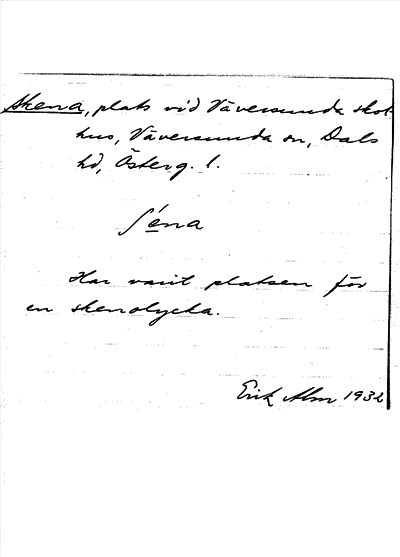 Skena, plats vid Väversunda skol-
hus, Väversunda sn, Dals
hd, Österg. l.
ʃéna
Har varit platsen för
en skenolycka.
Erik Alm 1932